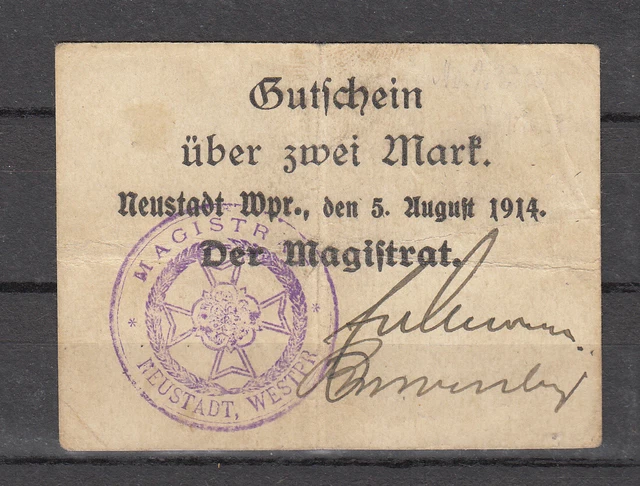 Gutschein
über zwei Mark.
Neustadt Wpr., den 5. August 1914.
Der Magistrat.
MAGISTRAT
* NEUSTADT, WESTPR *